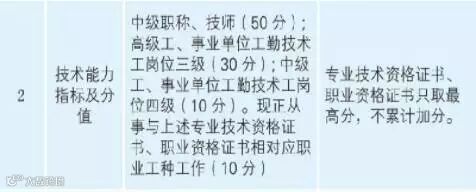 2
技术能力
指标及分
值
中级职称、技师（50 分）；
高级工、事业单位工勤技术
工岗位三级（30 分）；中级
工、事业单位工勤技术工岗
位四级（10 分）。现正从
事与上述专业技术资格证
书、职业资格证书相对应职
业工种工作（10 分）
专业技术资格证书、
职业资格证书只取最
高分，不累计加分。